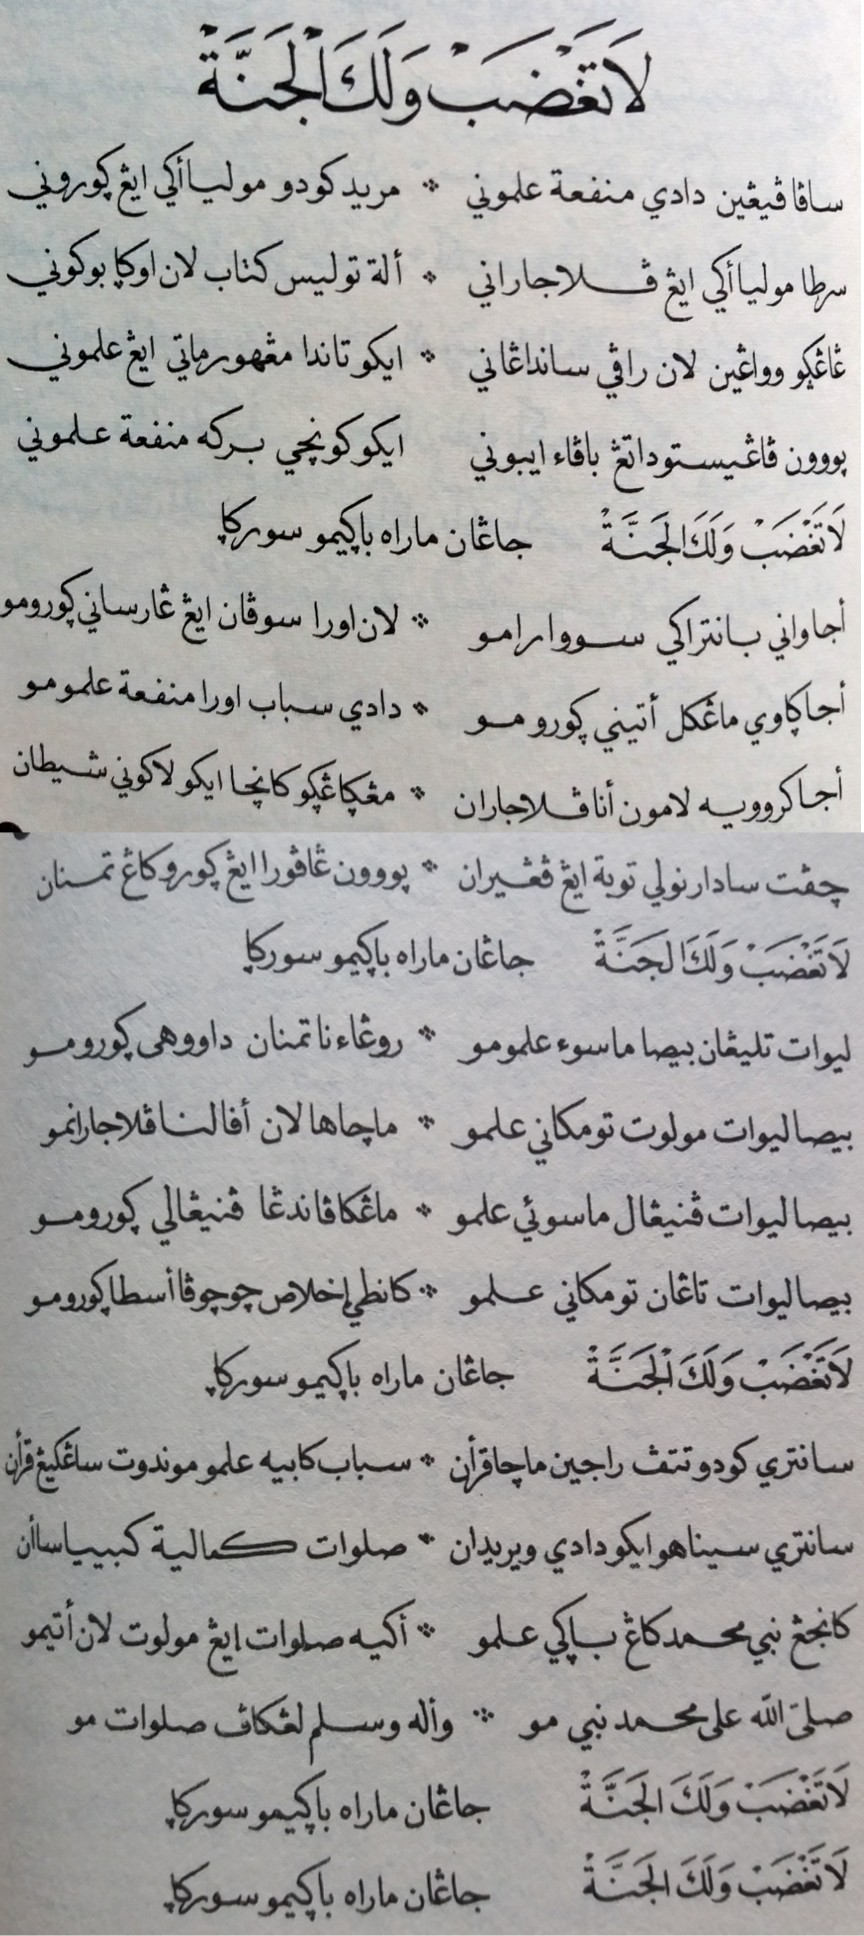 لَاتَغْضَبْ وَلَكَ الْجَنَّةْ
ساڤا ڤيڠين دادي منفعة علموني * مريد كودو مولياأكي ايڠ ڮوروني
سرطا مولياأكي ايڠ ڤلاجاراني * ألة توليس كتاب لان اوڮا بوكوني
ڠاڠڮو وواڠين لان راڤي سانداڠاني * ايكو تاندا مڠهورماتي ايڠ علموني
پووون ڤاڠيستو داتڠ باڤاء ايبوني ايكو كونچي بركه منفعة علموني
لَاتَغْضَبْ وَلَكَ الْجَنَّةْ جاڠان ماراه باڮيمو سورڮا
أجا واني بانتراكي سووارامو * لان اورا سوڤان ايڠ ڠارساني ڮورومو
أجا ڮاوي ماڠكل أتيني ڮورومو * دادي سباب اورا منفعة علمومو
أجا كروويه لامون أنا ڤلاجاران * مڠڮا ڠڮو كانچا ايكو لاكوني شيطان
چڤت سادار نولي توبة ايڠ ڤڠيران * پووون ڠاڤورا ايڠ ڮورو كاڠ تمنان
لَاتَغْضَبْ وَلَكَ الْجَنَّةْ جاڠان ماراه باڮيمو سورڮا
ليوات تليڠان بيصا ماسوء علمومو * روڠاءنا تمنان داووهى ڮورومو
بيصا ليوات مولوت تومكاني علمو * ماچاها لان أفالنا ڤلاجارانمو
بيصا ليوات ڤنيڠال ماسوئي علمو * ماڠكا ڤاندڠا ڤنيڠالي ڮورومو
بيصا ليوات تاڠان تومكاني علمو * كانطي إخلاص چوچوڤا أسطا ڮورومو
لَاتَغْضَبْ وَلَكَ الْجَنَّةْ جاڠان ماراه باڮيمو سورڮا
سانتري كودو تتڤ راجين ماچا قرأن * سباب كابيه علمو موندوت ساڠكيڠ قرأن
سانتري سيناهو ايكو دادي ويريدان * صلوات كمالية كبيياسأن
كانجڠ نبي محمد كاڠ باڮي علمو * أكيه صلوات إيڠ مولوت لان أتيمو
صلىّ الله على محمد نبي مو * وأله وسلم لڠكاڤ صلوات مو
لَاتَغْضَبْ وَلَكَ الْجَنَّةْ جاڠان ماراه باڮيمو سورڮا
لَاتَغْضَبْ وَلَكَ الْجَنَّةْ جاڠان ماراه باڮيمو سورڮا